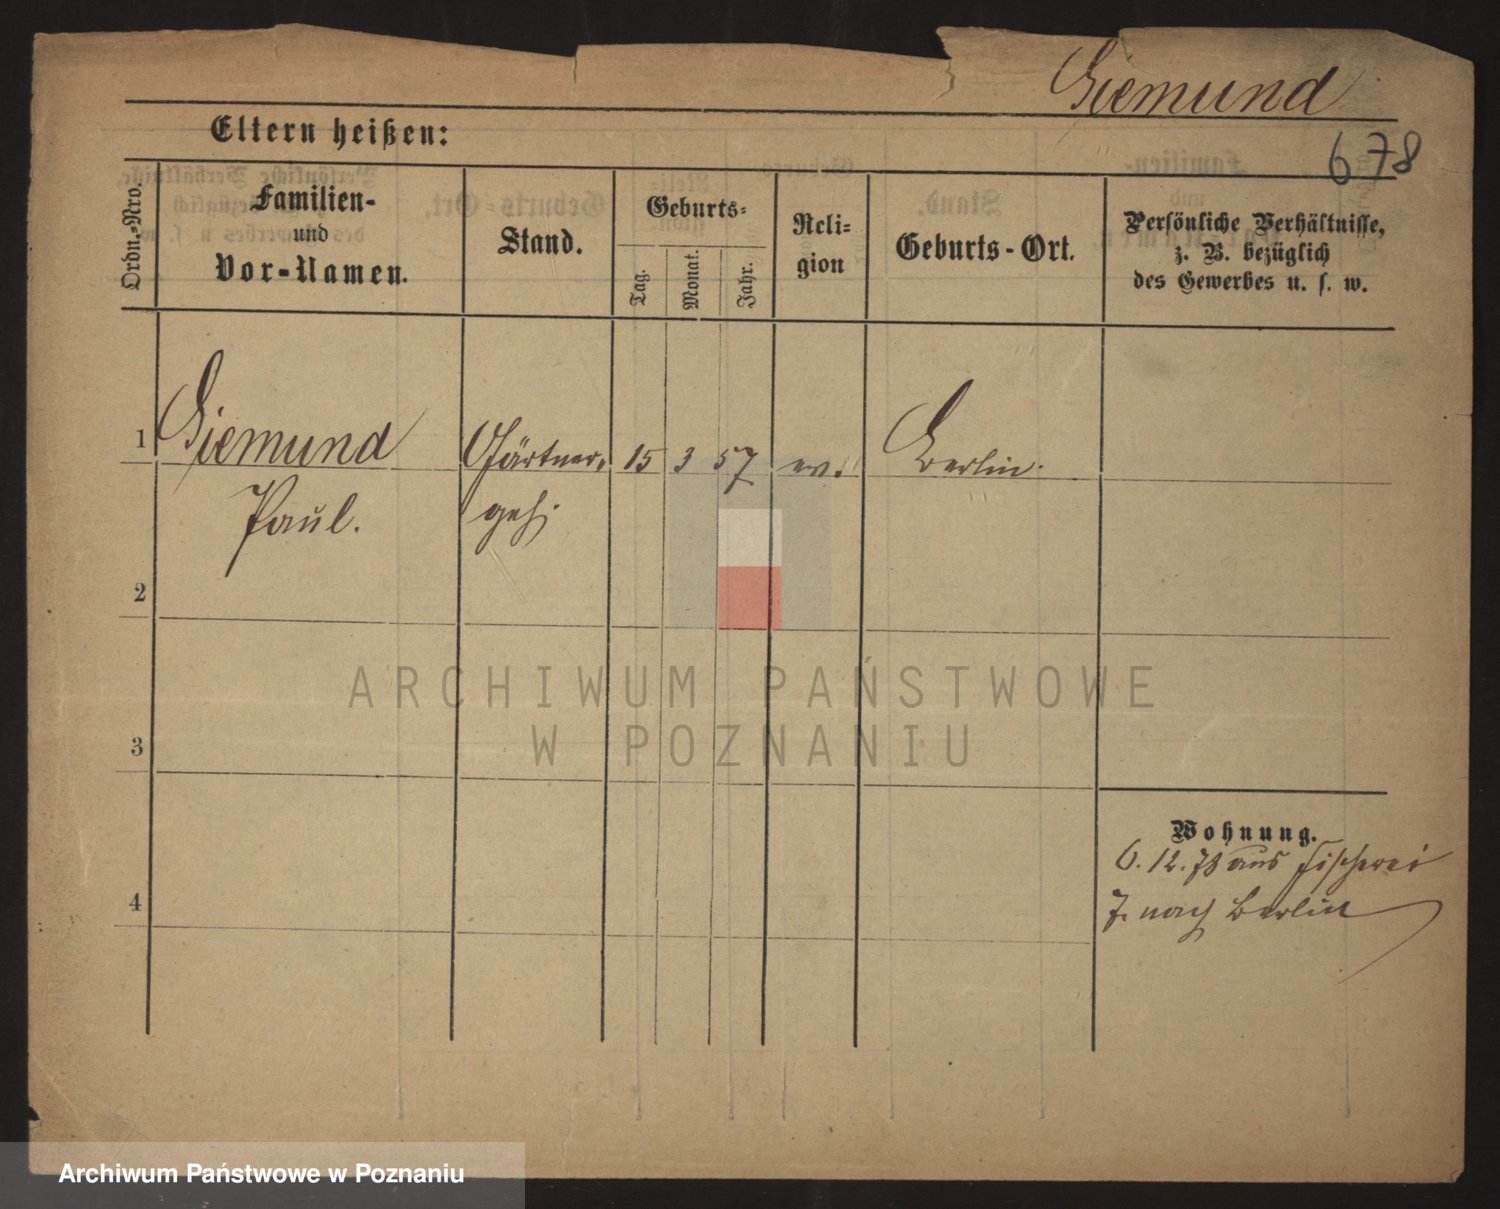 Siemund
678
Eltern heißen:
Ordn.-Nro.
Familien-
und
Vor-Namen.
Stand.
Geburts-
Tag.
Monat.
Jahr.
Reli-
gion
Geburts-Ort.
Persönliche Verhältnisse,
z. B. bezüglich
des Gewerbes u. s. w.
1 Siemund Gärtner 15 3 57 ev. Berlin.
Paul. geh.
2
3
4
Wohnung.
6. 12. 78 aus Fischerei
7. nach Berlin
ARCHIWUM PAŃSTWOWE
W POZNANIU
Archiwum Państwowe w Poznaniu